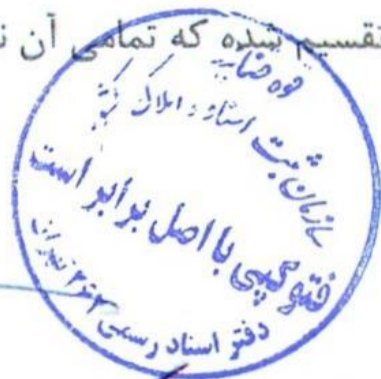 تقسیم شده که تمامی آن ن
قوه قضاییه
سازمان ثبت اسناد و املاک کشور
فتوکپی با اصل برابر است
دفتر اسناد رسمی تهران